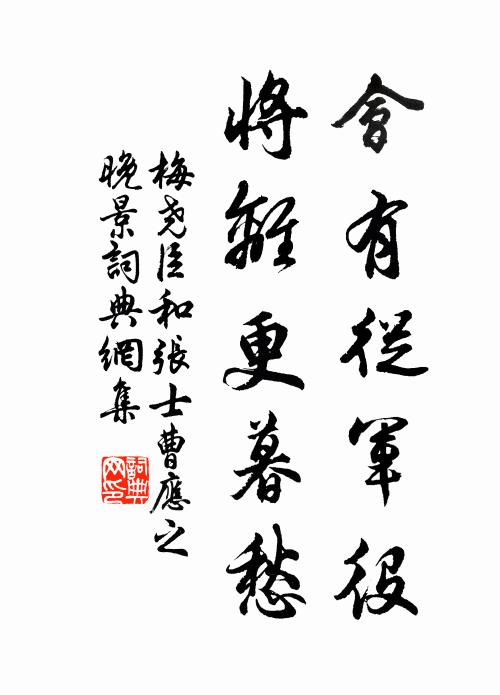 會有從軍役
將離更暮愁
梅尧臣和張士曹應之
晚景詞典網集
詞典
网印